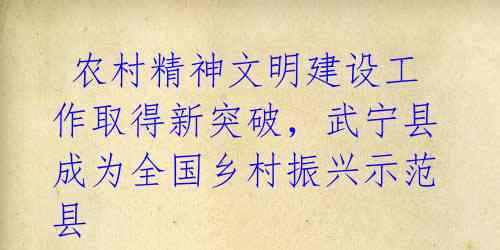 农村精神文明建设工
作取得新突破，武宁县
成为全国乡村振兴示范
县